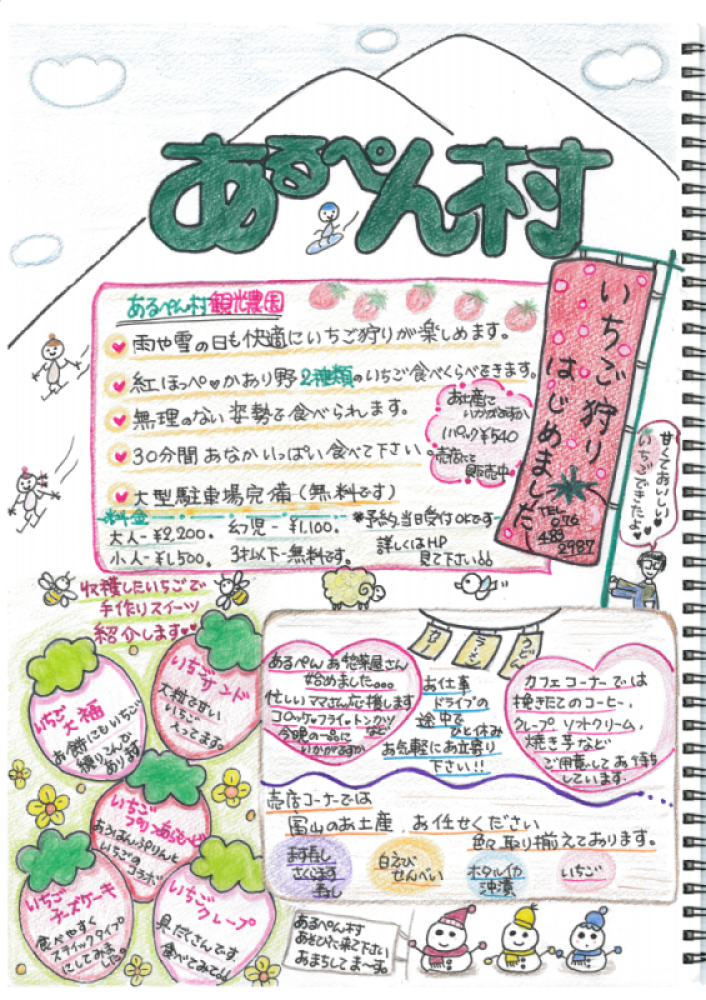 あるぺん村
いちご狩り
はじめました
TEL
076
483
2987
甘くておいしい
いちごできたよ
あるぺん村観光農園
雨や雪の日も快適にいちご狩りが楽しめます。
紅ほっぺ♥かおり野 2種類のいちご食べくらべできます。
無理のない姿勢で食べられます。
30分間おなかいっぱい食べて下さい。
大型駐車場完備(無料です)
お土産に
いかがですか
1パック¥540
売店にて
販売中
料金
大人-¥2,200. 幼児-¥1,100.
小人-¥1,500. 3才以下-無料です。
※予約、当日受付OKです
詳しくはHP
見て下さい
収穫したいちごで
手作りスイーツ
紹介します♥♥
いちご
サンド
大粒で甘い
いちご
入ってます。
いちご
大福
お餅にもいちご
練りこんで
あります
いちご
おうはんぷりんと
いちごの
コラボ
いちご
チーズケーキ
食べやすく
スティックタイプ
にしてみました。
いちご
クレープ
具だくさんです
食べてみて
カレー
ラーメン
うどん
あるぺんお惣菜屋さん
始めました。。。
忙しいママさん応援します
コロッケ♥フライ♥トンカツ
など
今晩の一品に
いかがですか
お仕事
ドライブの
途中で
ひと休み
お気軽にお立寄り
下さい!!
カフェコーナーでは
挽きたてのコーヒー、
クレープ ソフトクリーム、
焼き芋など
ご用意してお待ち
しています。
売店コーナーでは
富山のお土産、お任せください
色々取り揃えております。
ます寿し
さくらます
寿し
白えび
せんべい
ホタルイカ
沖漬
いちご
あるぺん村
あそびに来て下さい
おまちしてま〜す。